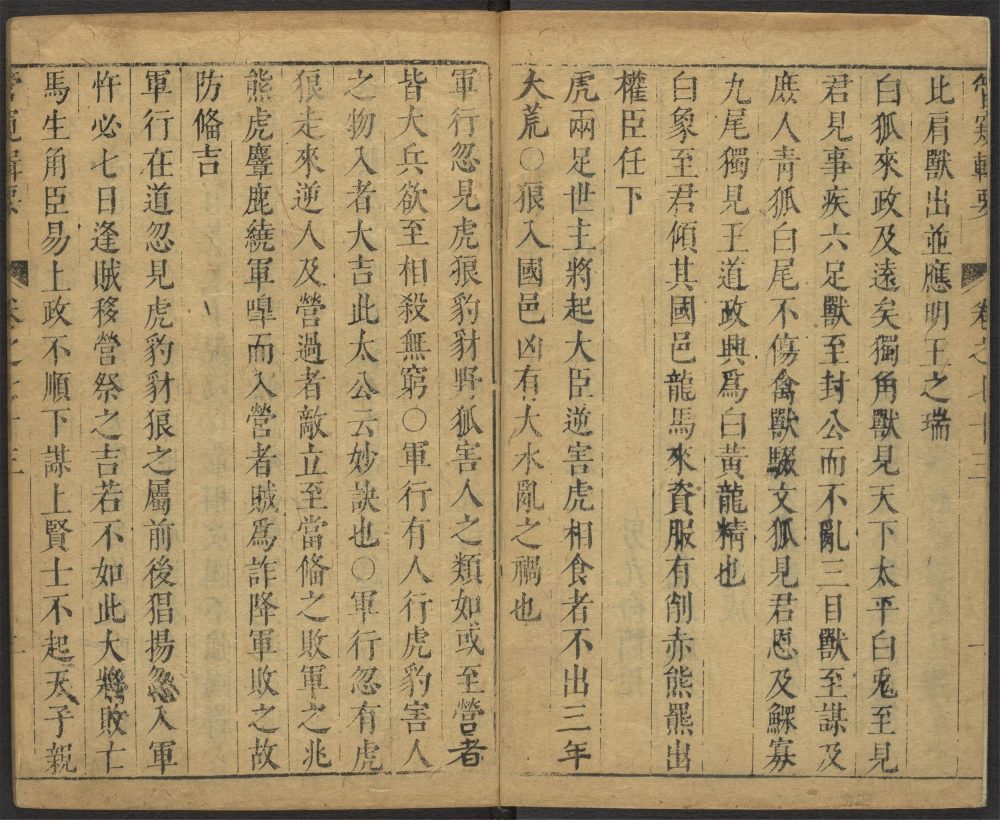 管窺輯要 卷之七十三
比肩獸出並應明王之瑞
白狐來政及遠矣獨角獸見天下太平白兎至見
君見事疾六足獸至封公而不亂三目獸至謀及
庶人靑狐白尾不傷禽獸騶文狐見君恩及鰥寡
九尾獨見王道政興爲白黃龍精也
白象至君傾其國邑龍馬來資服有削赤熊羆出
權臣任下
虎兩足世主將起大臣逆害虎相食者不出三年
大荒○狼入國邑凶有大水亂之禍也
軍行忽見虎狼豹豺野狐害人之類如或至營者
皆大兵欲至相殺無窮○軍行有人行虎豹害人
之物入者大吉此太公云妙訣也○軍行忽有虎
狼走來逆人及營過者敵立至當俻之敗軍之兆
熊虎麞鹿繞軍嘷而入營者賊爲詐降軍敗之故
防俻吉
軍行在道忽見虎豹豺狼之屬前後猖揚忽入軍
忤必七日逢賊移營祭之吉若不如此大將敗亡
馬生角臣易上政不順下謀上賢士不起天子親
管窺輯要 卷之七十三